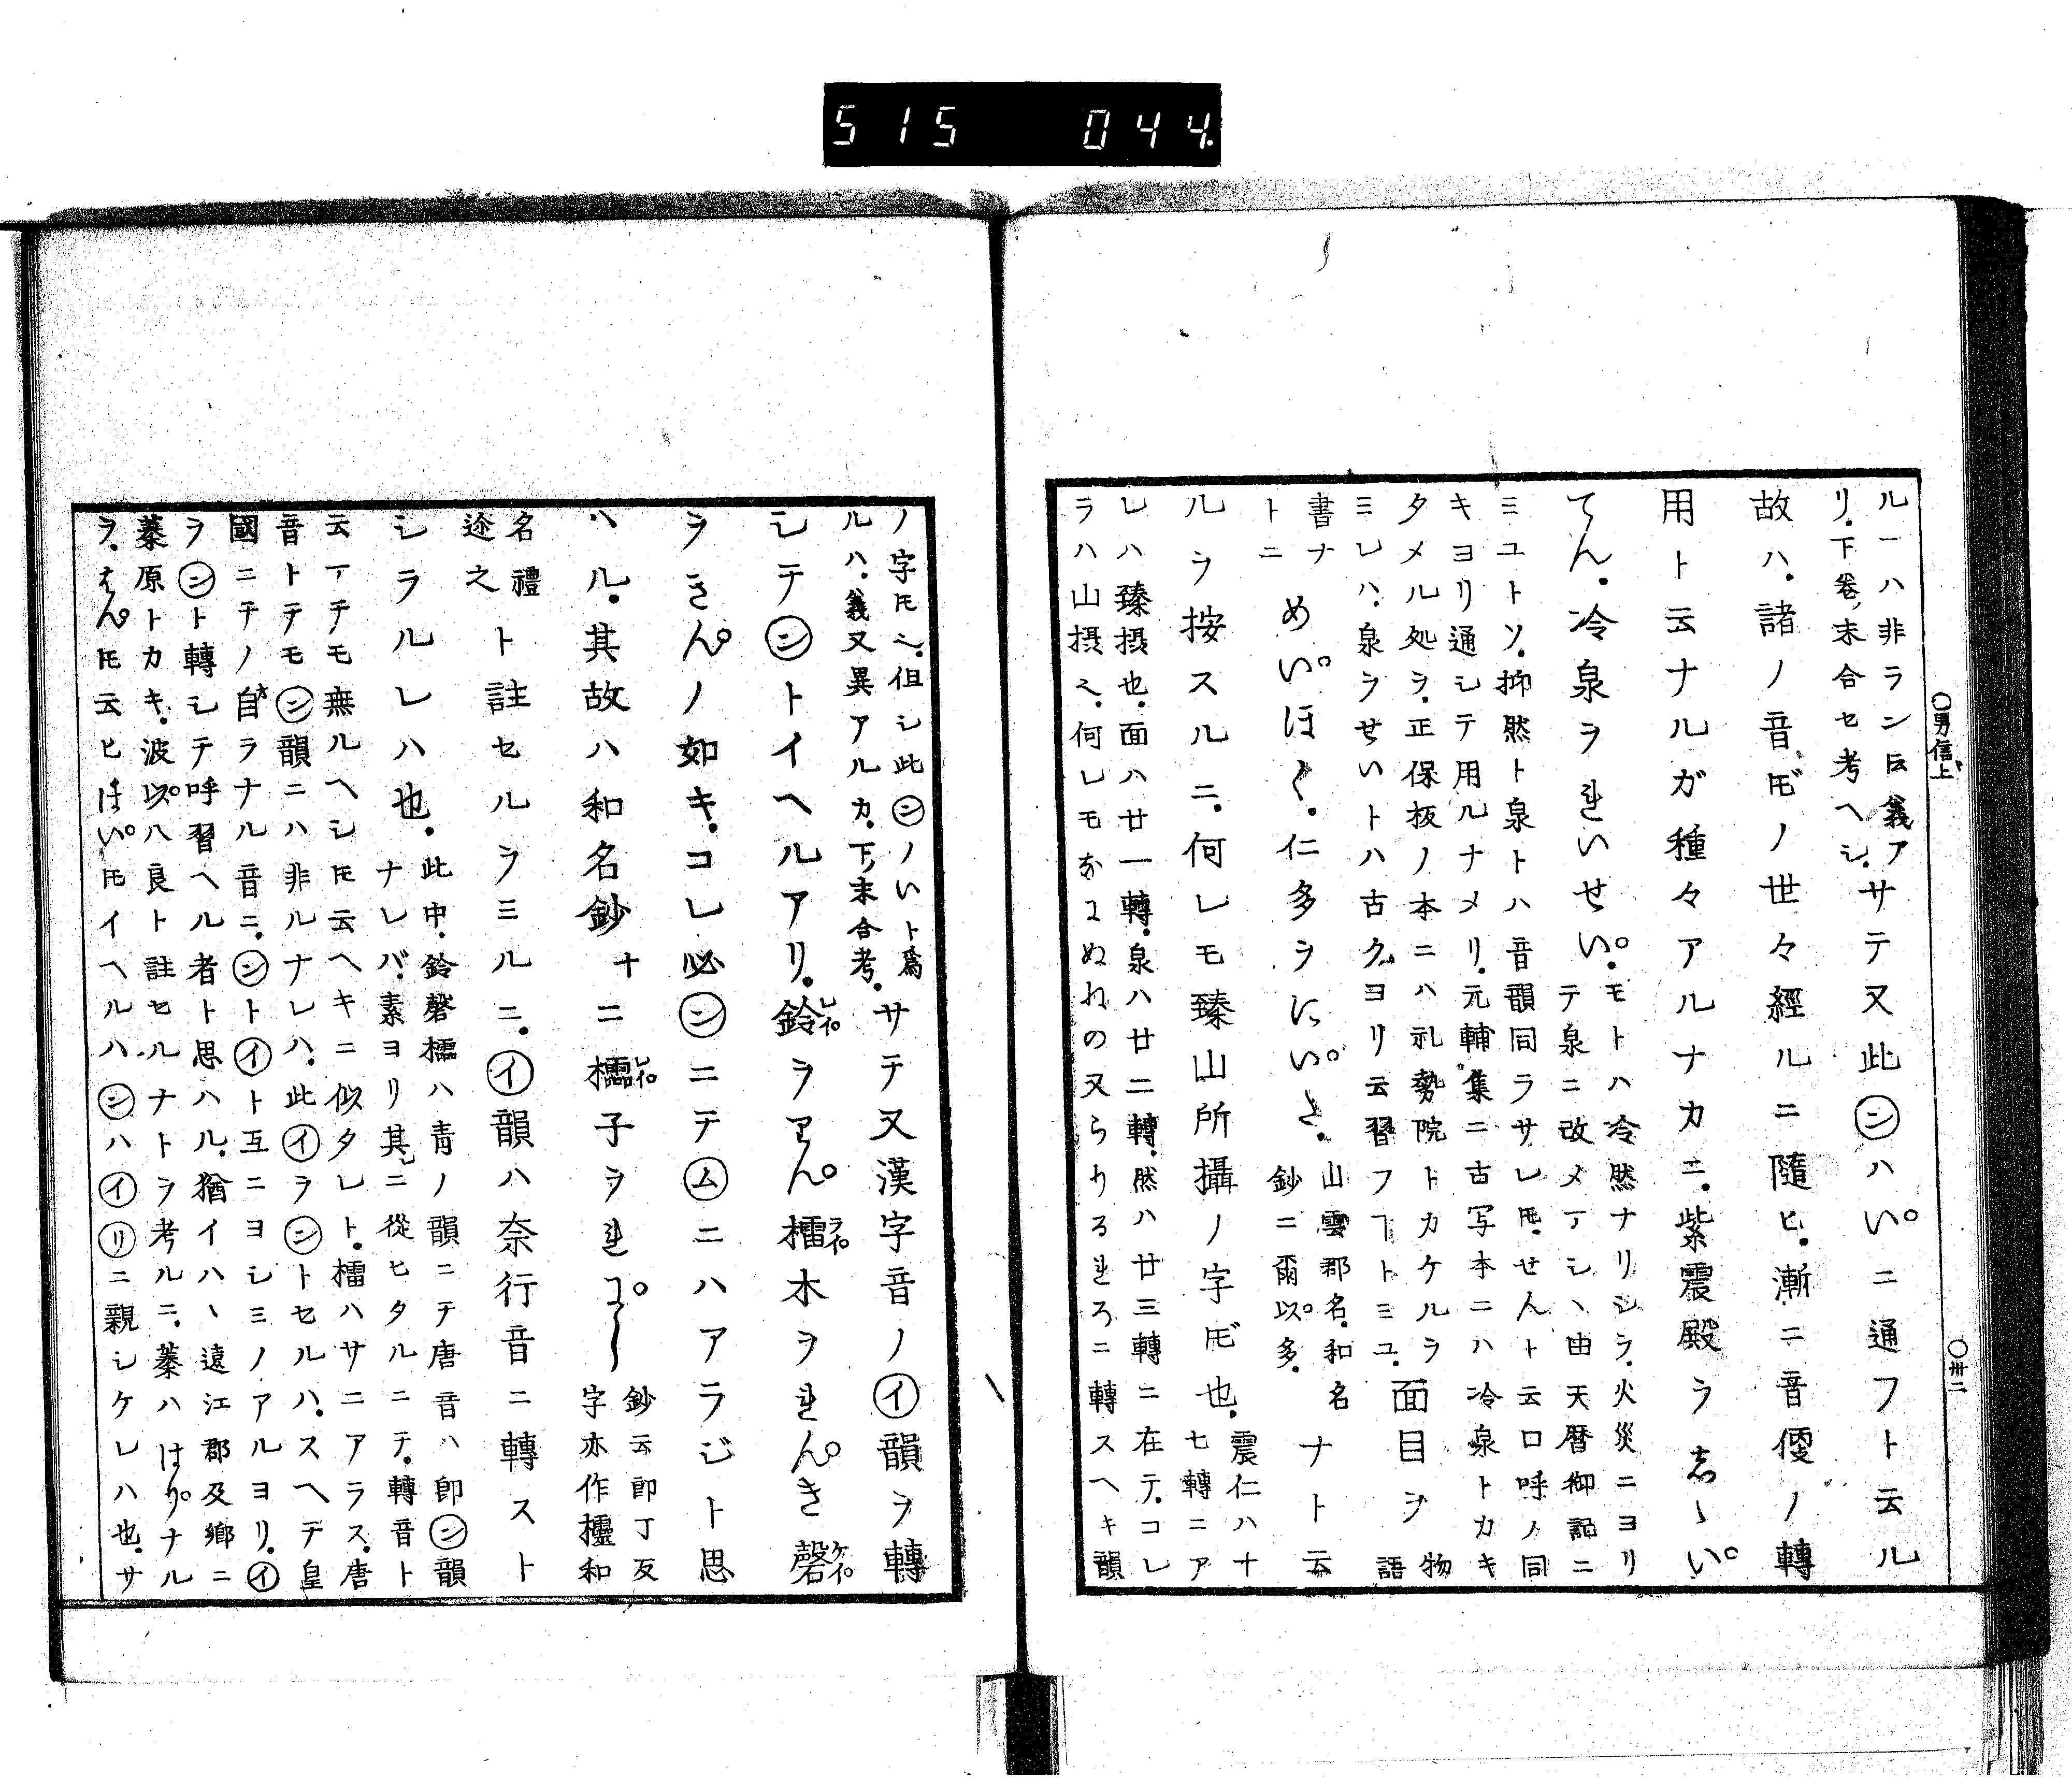 515 044
○男信上
○卅二
ルーハ非ランㇾ𪜈義ア
リ。下卷ノ末合セ考ヘシ。
サテ又此㋛ハい。ニ通フト云ル
故ハ。諸ノ音𪜈ノ世々經ルニ隨ヒ。漸ニ音便ノ轉
用ト云ナルガ種々アルナカニ。紫震殿ヲしゝい。
てん。冷泉ヲれいせい。
モトハ冷然ナリシヲ。火災ニヨリ
テ泉ニ改メアシヽ由天暦御記ニ
ミユトソ。抑然ト泉トハ音韻同ラサレ𪜈。せんト云口呼ノ同
キヨリ通シテ用ルナメリ。元輔集ニ古写本ニハ冷泉トカキ
タメル処ヲ。正保板ノ本ニハ礼勢院トカケルヲ
ミレハ。泉ヲせいトハ古クヨリ云習フヿトミユ。
面目ヲ
物語
書ナ
トニ
めい。ほく。仁多ヲにい。と。
山雲郡名。和名
鈔ニ爾以。多。
ナト云
ルヲ按スルニ。何レモ臻山所攝ノ字𪜈也。
震仁ハ十
七轉ニア
レハ臻摂也。面ハ廿一轉。泉ハ廿二轉。然ハ廿三轉ニ在テ。コレ
ラハ山摂也。何レモなにぬねの又らりるれろニ轉スヘキ韻
ノ字𪜈也。但シ此㋛ノいト爲
ルハ。義又異アルカ。下ノ末合考。
サテ又漢字音ノ㋑韻ヲ轉
シテンイヘルアリ。鈴ヲりん。櫺木ヲれん。き磬
ヲきん。ノ如キ。コレ必ンニテ㋰ニハアラジト思
ハル。其故ハ和名鈔十ニ櫺子ヲれに。し
鈔云即丁反
字亦作欞和
名禮
迩之
ト註セルヲミルニ。㋑韻ハ奈行音ニ轉スト
シラルレハ也。
此中。鈴磬櫺ハ青ノ韻ニテ唐音ハ即ン韻
ナレバ。素ヨリ其ニ從ヒタルニテ。轉音ト
云ヿチモ無ルヘシ𪜈云ヘキニ似タレト。櫺ハサニアラス。唐
音トテモン韻ニハ非ルナレハ。此㋑ヲントセルハ。スヘテ皇
國ニテノ自ラナル音ニ。ント㋑ト互ニヨシミノアルヨリ。㋑
ヲント轉シテ呼習ヘル者ト思ハル。猶イハヽ遠江郡及鄉ニ
蓁原トカキ。波以。ハ良ト註セルナトヲ考ルニ。蓁ハはり。ナル
ヲ。はん。𪜈云ヒはい。𪜈イヘルハンハ㋑㋷ニ親シケレハ也。サ